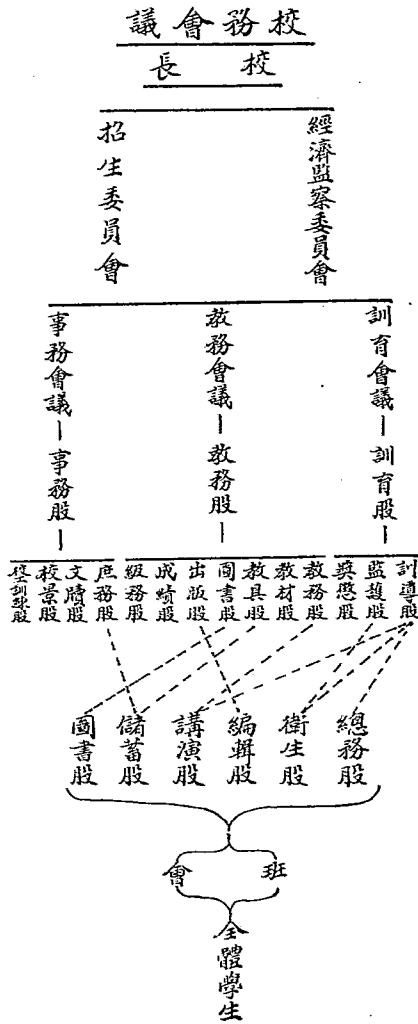 校務會議
校長
經濟監察委員會
招生委員會
訓育會議—訓育股—
教務會議—教務股—
事務會議—事務股—
訓導股
監護股
獎懲股
教務股
教材股
教具股
圖書股
出版股
成績股
級務股
庶務股
文牘股
校景股
總務股
衛生股
編輯股
講演股
儲蓄股
圖書股
班會
全體學生